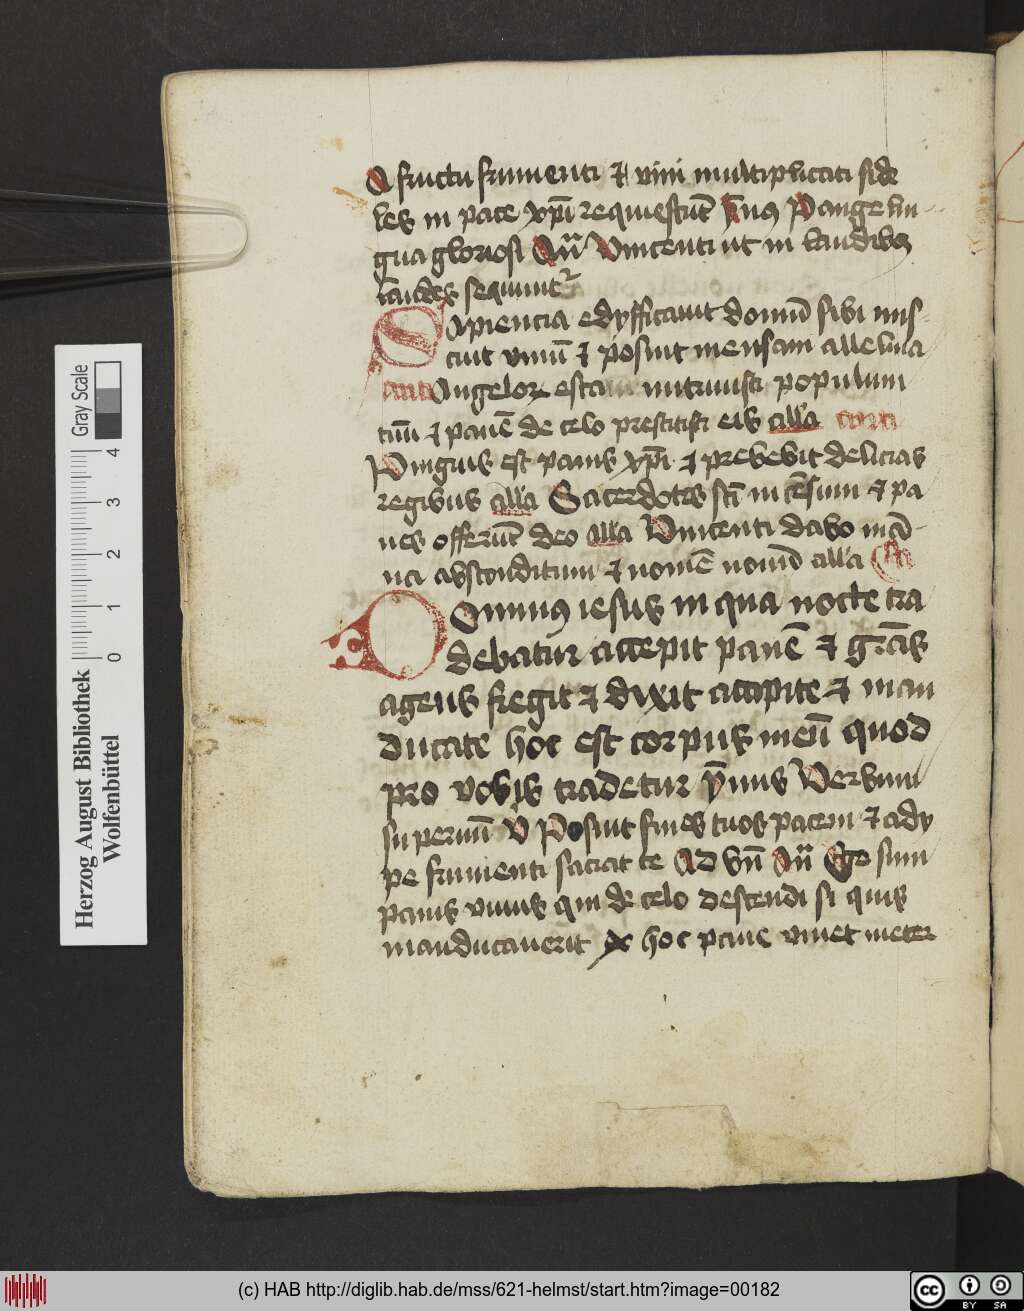 A fructu frumenti et vini multiplicati fide
les in pace xpi requiescut ymus Pange lin
gua gloriosi An Vincenti ut in laudibus
laudes sequuntr
Sapiencia edyfficauit domu sibi mis
cuit vinu et posuit mensam alleluia
ana Angelor esca nutriuisti populum
tuu et pane de celo prestitisti eis alla
Pinguis est panis xpi et prebebit delicias
regibus alla Sacerdotes sci incesum et pa
nes offerut deo alla Vincenti dabo man
na absconditum et nome nouu alla Ca
Dominus iesus in qua nocte tra
debatur accepit pane et gracias
agens fregit et dixit accipite et man
ducate hoc est corpus meu quod
pro vobis tradetur ymus Verbum
supernu V Posuit fines tuos pacem et ady
pe frumenti saciat te Ad bn An Ego sum
panis viuus qui de celo descendi si quis
manducauerit hoc pane viuet ineter
Herzog August Bibliothek
Wolfenbüttel
Gray Scale
0 1 2 3 4
(c) HAB http://diglib.hab.de/mss/621-helmst/start.htm?image=00182
cc BY SA